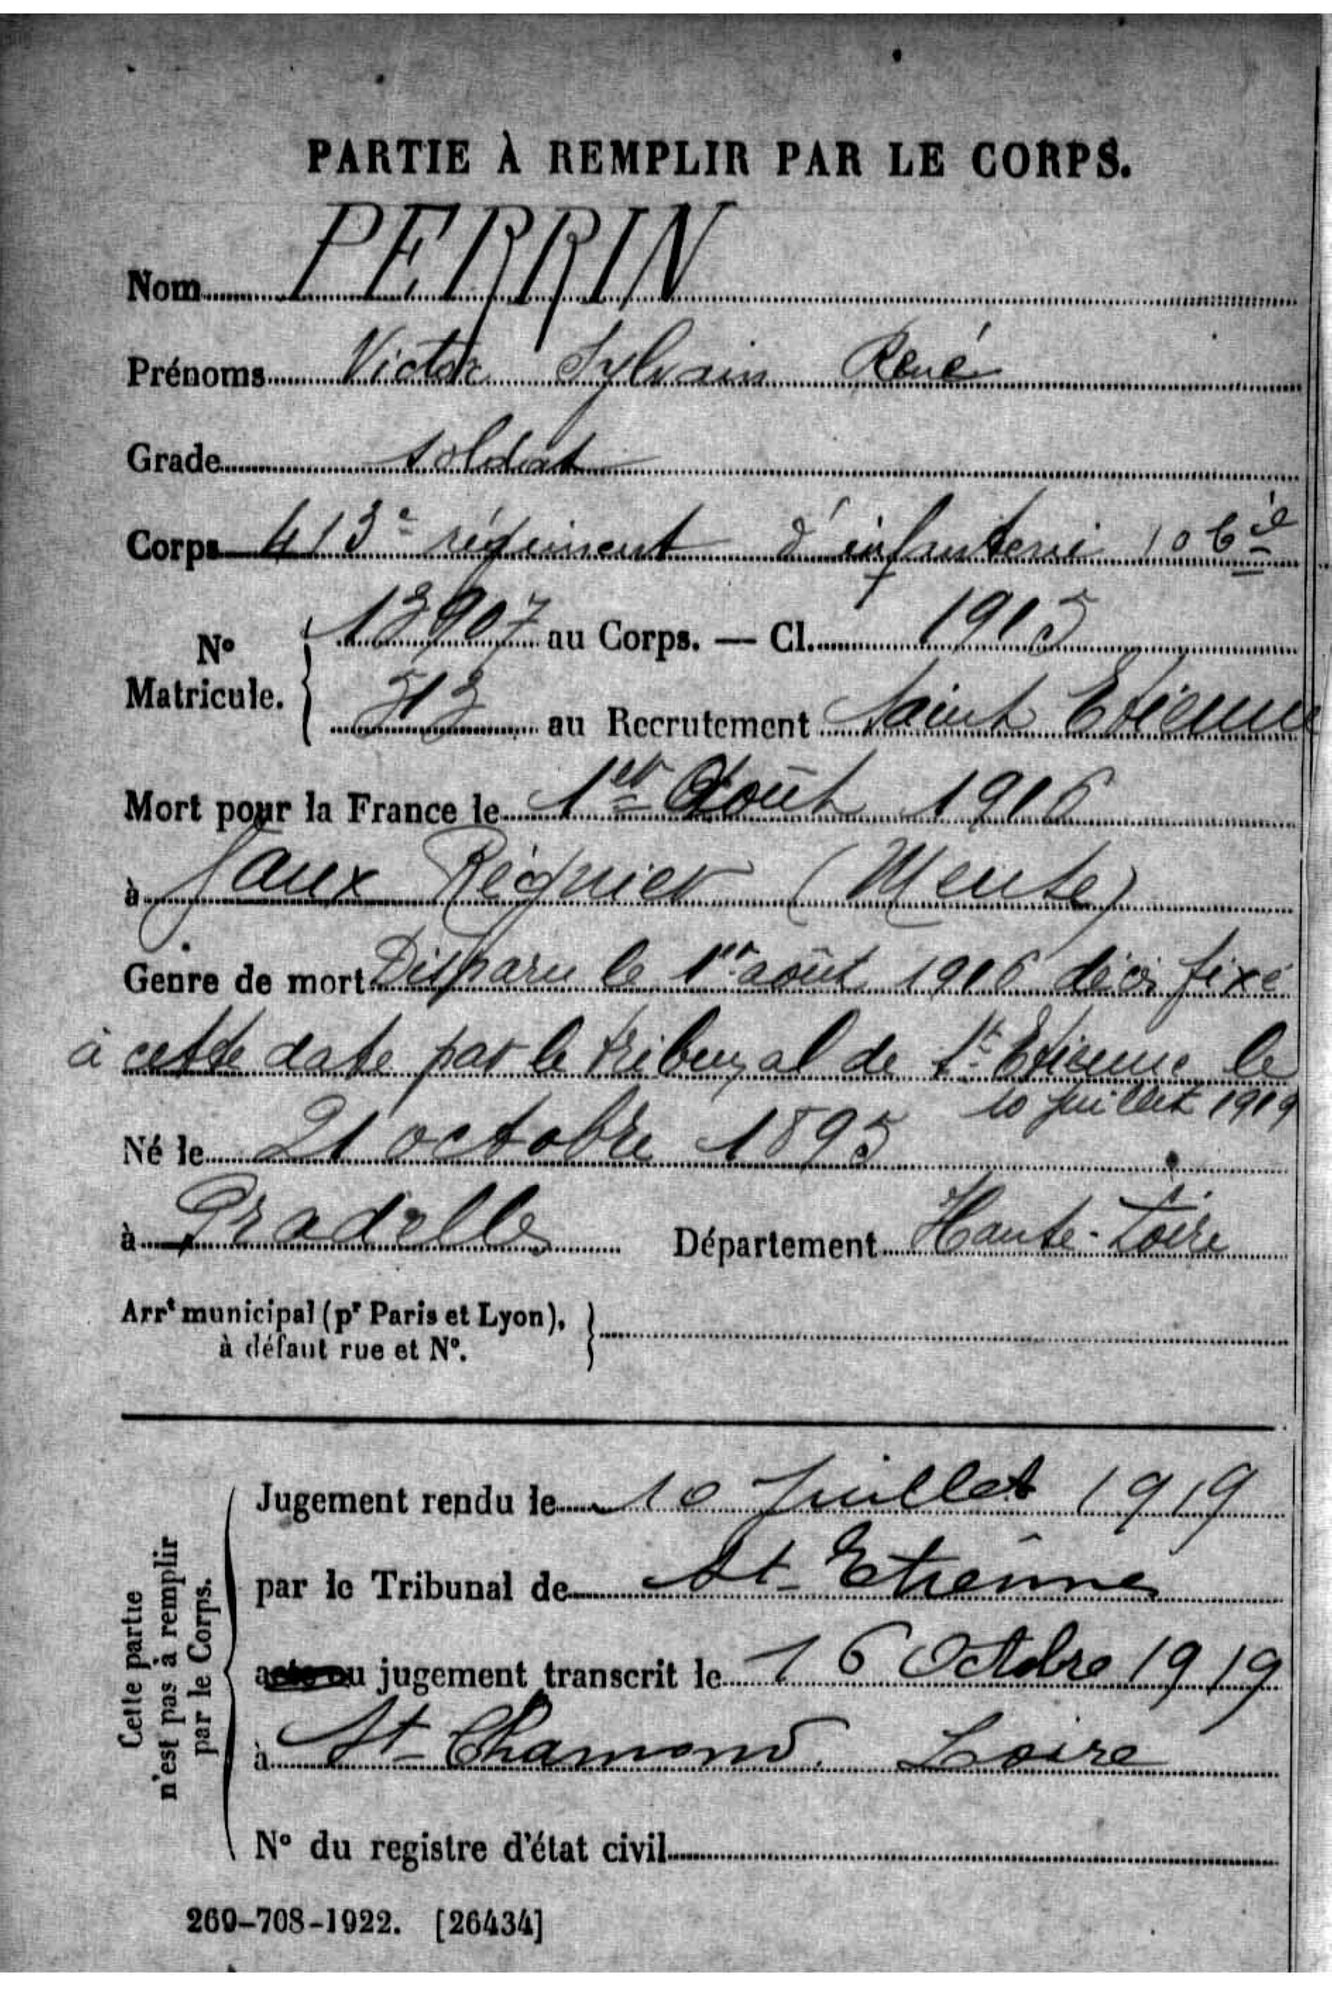 PARTIE À REMPLIR PAR LE CORPS.
Nom PERRIN
Prénoms Victor Sylvain René
Grade soldat
Corps 413e régiment d'infanterie 10e Cie
No Matricule. { 13907 au Corps. — Cl. 1915
513 au Recrutement Saint Etienne
Mort pour la France le 1er Août 1916
à Vaux Régnier (Meuse)
Genre de mort Disparu le 1er août 1916 décès fixé
à cette date par le tribunal de St Etienne le
10 juillet 1919
Né le 21 octobre 1895
à Pradelles Département Haute-Loire
Arrt municipal (pr Paris et Lyon), }
à défaut rue et No.
Cette partie
n'est pas à remplir
par le Corps.
Jugement rendu le 10 Juillet 1919
par le Tribunal de St-Etienne
acte ou jugement transcrit le 16 Octobre 1919
à St-Chamond. Loire
No du registre d'état civil
260-708-1922. [26434]